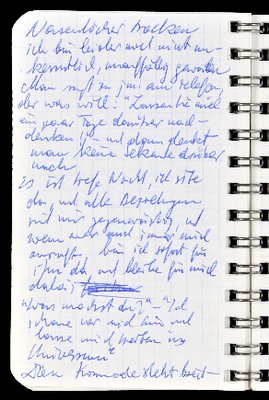 Nasenlöcher trocken
ich bin leider noch nicht un-
kenntlich, unauffällig geworden
Man sagt zu jm. am Telefon,
der was will: "Lassen Sie mich
ein paar Tage darüber nach-
denken!" - und dann denkt
man keine Sekunde drüber
nach
Es ist tiefe Nacht, ich sitze
da, und alle Beziehungen
sind mir gegenwärtig, und
wenn wer auch immer mich
anruft, bin ich sofort für
ihn da, und bleibe für mich
dabei
"Was machst du?" "Ich
schaue vor mich hin und
lasse mich treiben im
Universum"
Die Kommode steht breit-